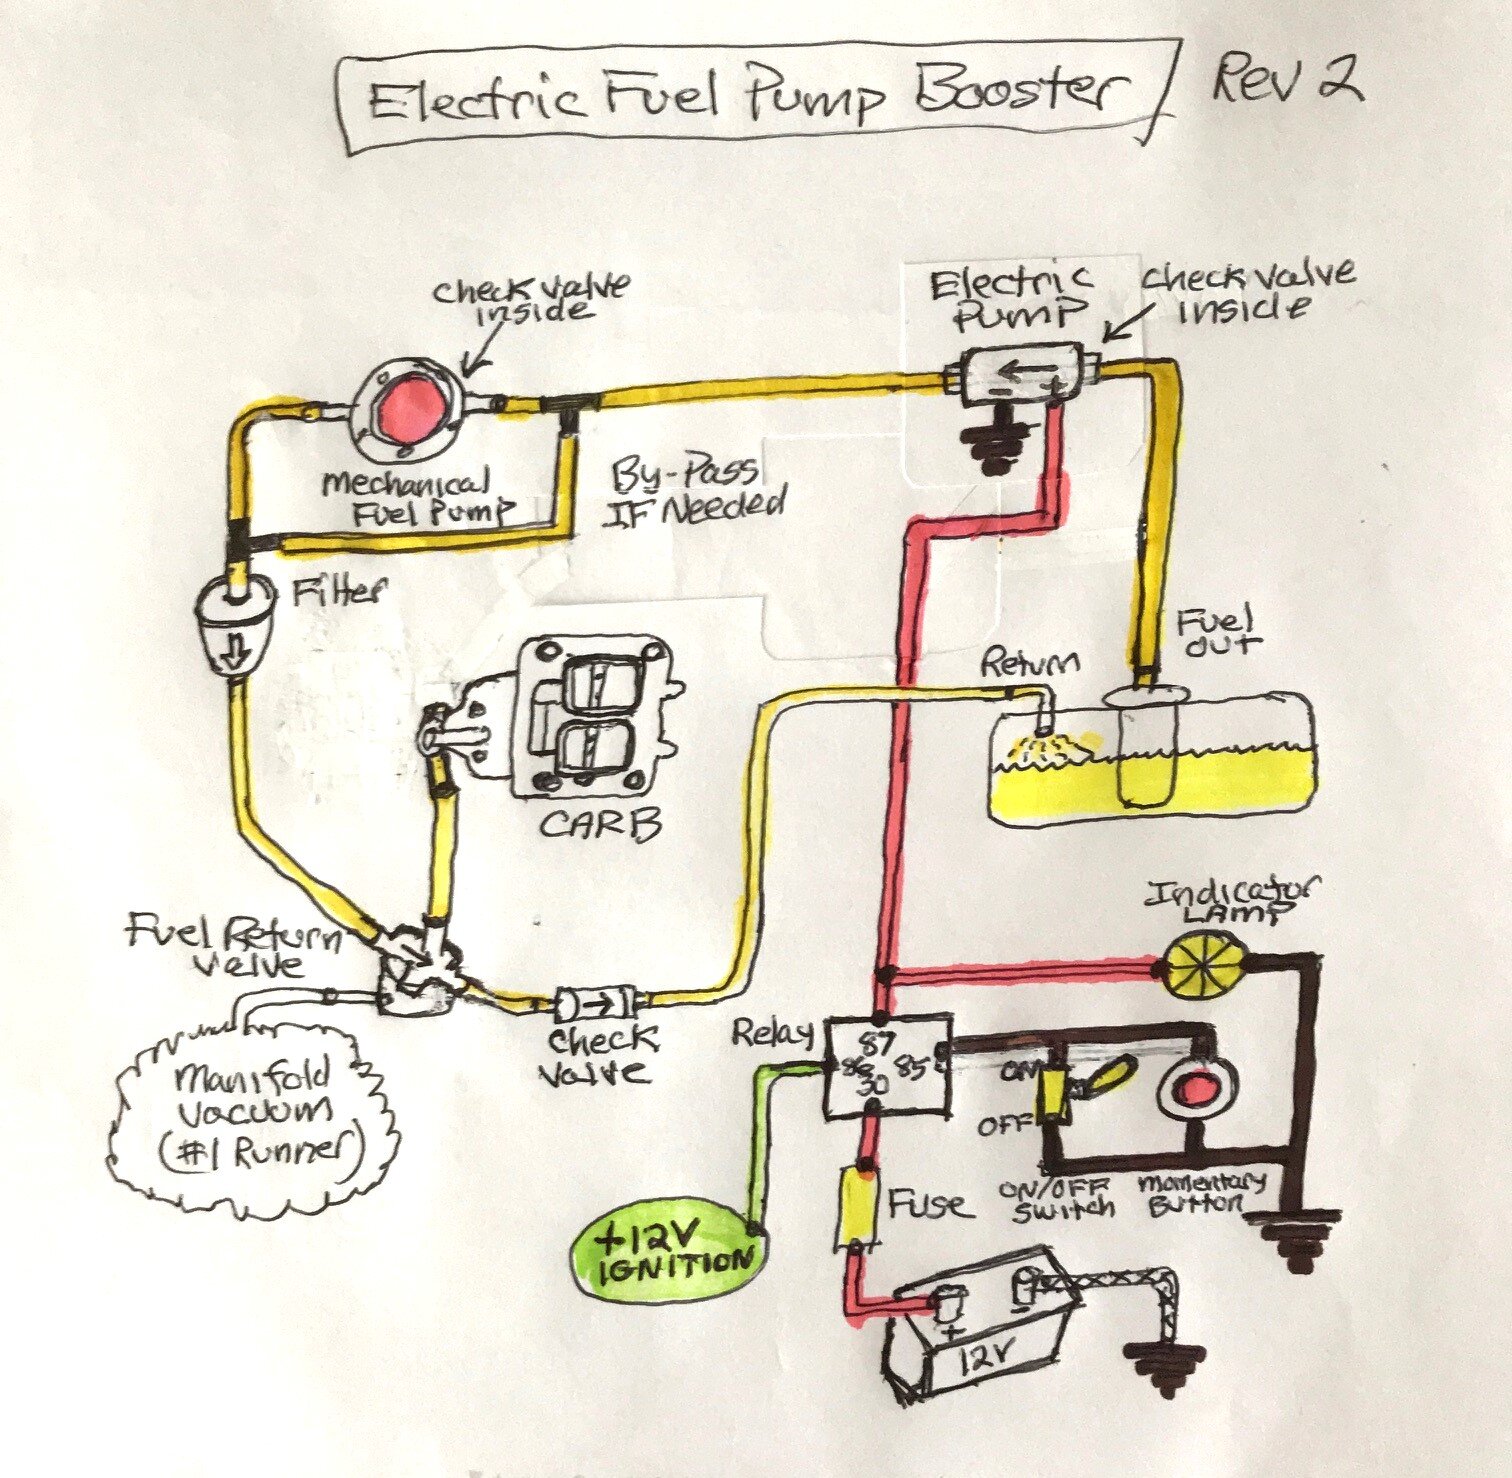 Electric Fuel Pump Booster
Rev 2
check valve
inside
Electric
Pump
check valve
inside
-
+
Mechanical
Fuel Pump
By-Pass
IF Needed
Filter
Fuel
out
Return
CARB
Fuel Return
Valve
Check
Valve
Manifold
Vacuum
(#1 Runner)
Indicator
LAMP
Relay
87
86
85
30
ON
OFF
ON/OFF
Switch
Momentary
Button
Fuse
+12V
IGNITION
+
-
12V